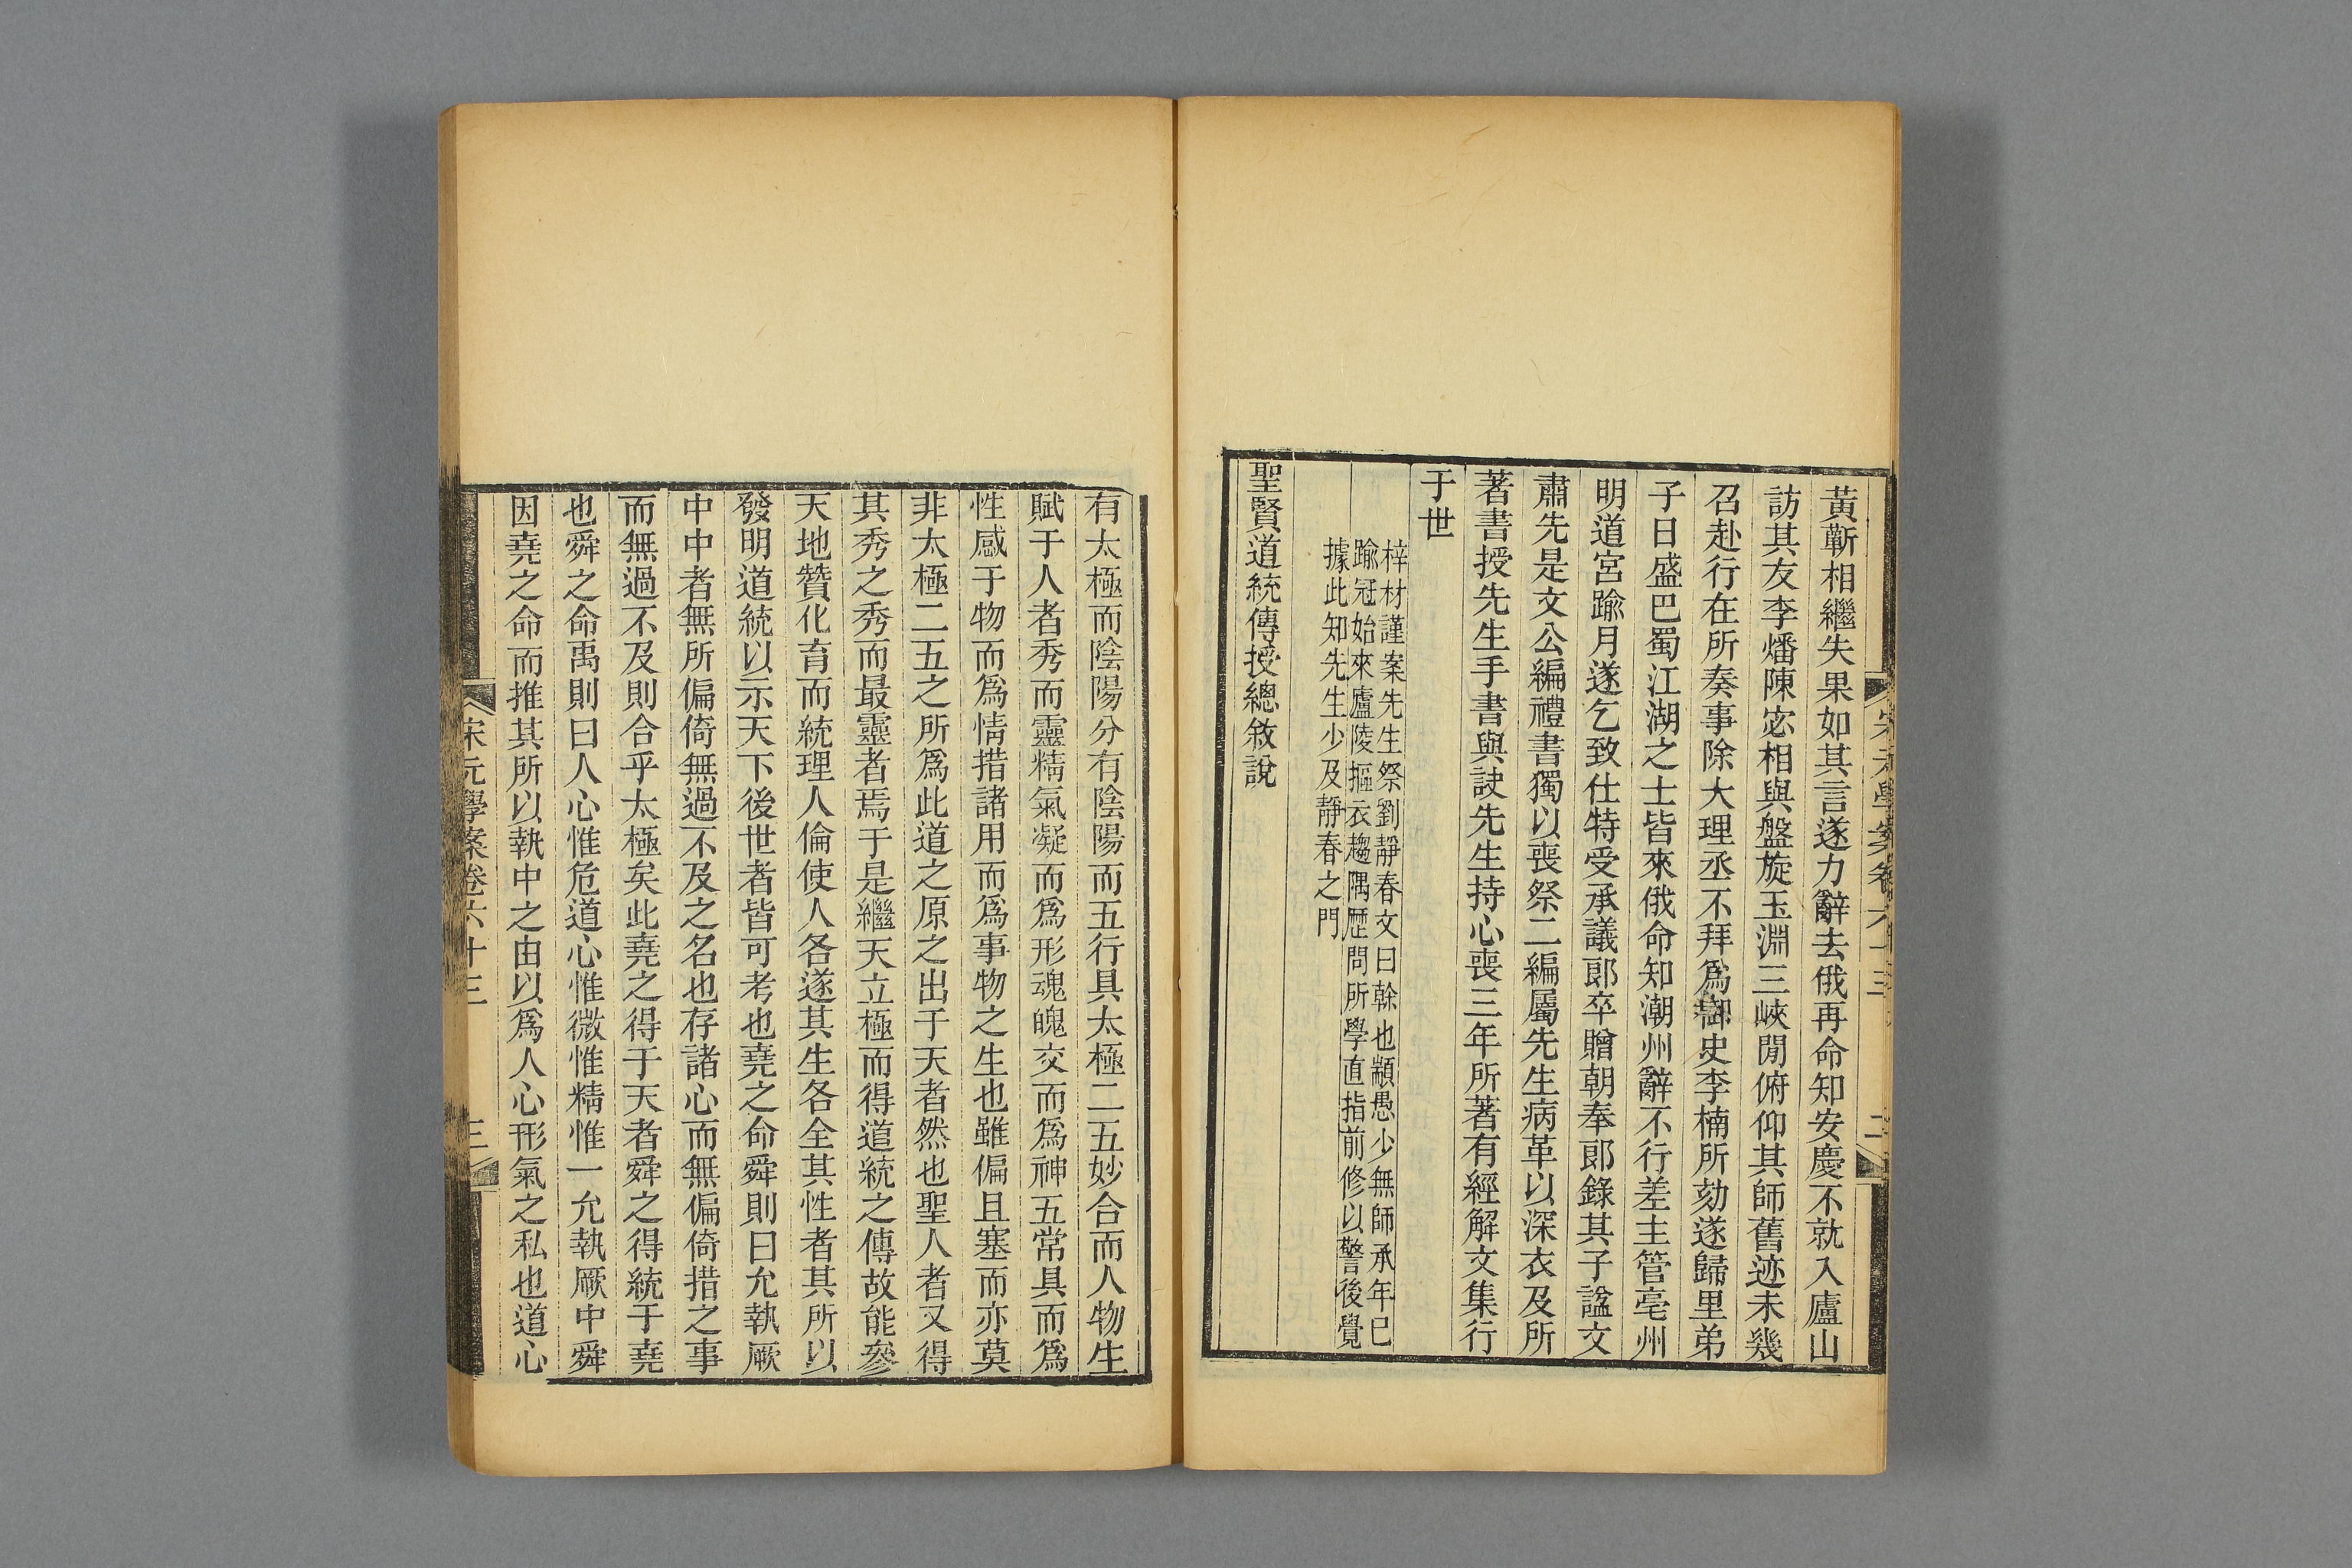 黃蘄相繼失果如其言遂力辭去俄再命知安慶不就入廬山
訪其友李燔陳宓相與盤旋玉淵三峽閒俯仰其師舊迹未幾
召赴行在所奏事除大理丞不拜爲御史李楠所劾遂歸里弟
子日盛巴蜀江湖之士皆來俄命知潮州辭不行差主管亳州
明道宮踰月遂乞致仕特受承議郎卒贈朝奉郎錄其子諡文
肅先是文公編禮書獨以喪祭二編屬先生病革以深衣及所
著書授先生手書與訣先生持心喪三年所著有經解文集行
于世
梓材謹案先生祭劉靜春文曰榦也顓愚少無師承年已
踰冠始來廬陵摳衣趨隅歷問所學直指前修以警後覺
據此知先生少及靜春之門
聖賢道統傳授總敘說
有太極而陰陽分有陰陽而五行具太極二五妙合而人物生
賦于人者秀而靈精氣凝而爲形魂魄交而爲神五常具而爲
性感于物而爲情措諸用而爲事物之生也雖偏且塞而亦莫
非太極二五之所爲此道之原之出于天者然也聖人者又得
其秀之秀而最靈者焉于是繼天立極而得道統之傳故能參
天地贊化育而統理人倫使人各遂其生各全其性者其所以
發明道統以示天下後世者皆可考也堯之命舜則曰允執厥
中中者無所偏倚無過不及之名也存諸心而無偏倚措之事
而無過不及則合乎太極矣此堯之得于天者舜之得統于堯
也舜之命禹則曰人心惟危道心惟微惟精惟一允執厥中舜
因堯之命而推其所以執中之由以爲人心形氣之私也道心
宋元學案卷六十三
三